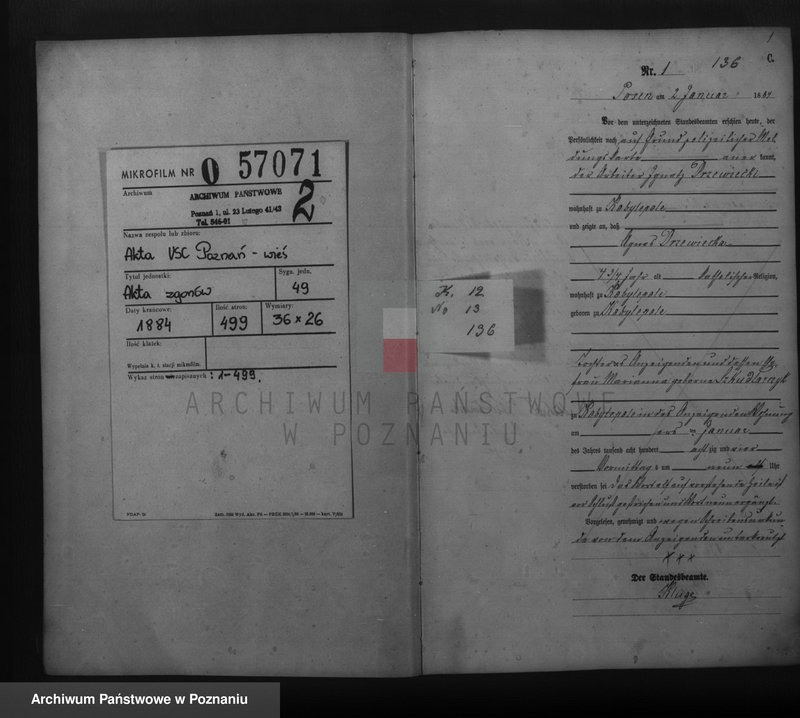 MIKROFILM NR O 57071
Archiwum
ARCHIWUM PAŃSTWOWE
Poznań 1, ul. 23 Lutego 41/43
Tel. 546-01
2
Nazwa zespołu lub zbioru:
Akta USC Poznań - wieś
Tytuł jednostki:
Akta zgonów
Sygn. jedn.
49
Daty krańcowe:
1884
Ilość stron:
499
Wymiary:
36 x 26
Ilość klatek:
Wypełnia k. t. stacji mikrofilm.
Wykaz stron zapisanych: 1-499.
K. 12
No 13
136
1
136
C.
Nr. 1
Posen am 2 Januar 1884
Vor dem unterzeichneten Standesbeamten erschien heute, der
Persönlichkeit nach auf Grund polizeilicher Mel
dungskarte anerkannt,
der Arbeiter Ignatz Drzewiecki
wohnhaft zu Kobylepole
und zeigte an, daß
Agnes Drzewiecka
7 3/4 Jahr alt katholischer Religion,
wohnhaft zu Kobylepole
geboren zu Kobylepole
Tochter des Anzeigenden und dessen Ehe
frau Marianna geborene Szkudlarczyk
zu Kobylepole in des Anzeigenden Wohnung
am ersten Januar
des Jahres tausend acht hundert achtzig und vier
Vormittag s um neun Uhr
verstorben sei
Vorgelesen, genehmigt und wegen Schreibensunkun
de von dem Anzeigenden unterkreuzt
xxx
Der Standesbeamte.
Kluge
ARCHIWUM PAŃSTWOWE
W POZNANIU
Archiwum Państwowe w Poznaniu